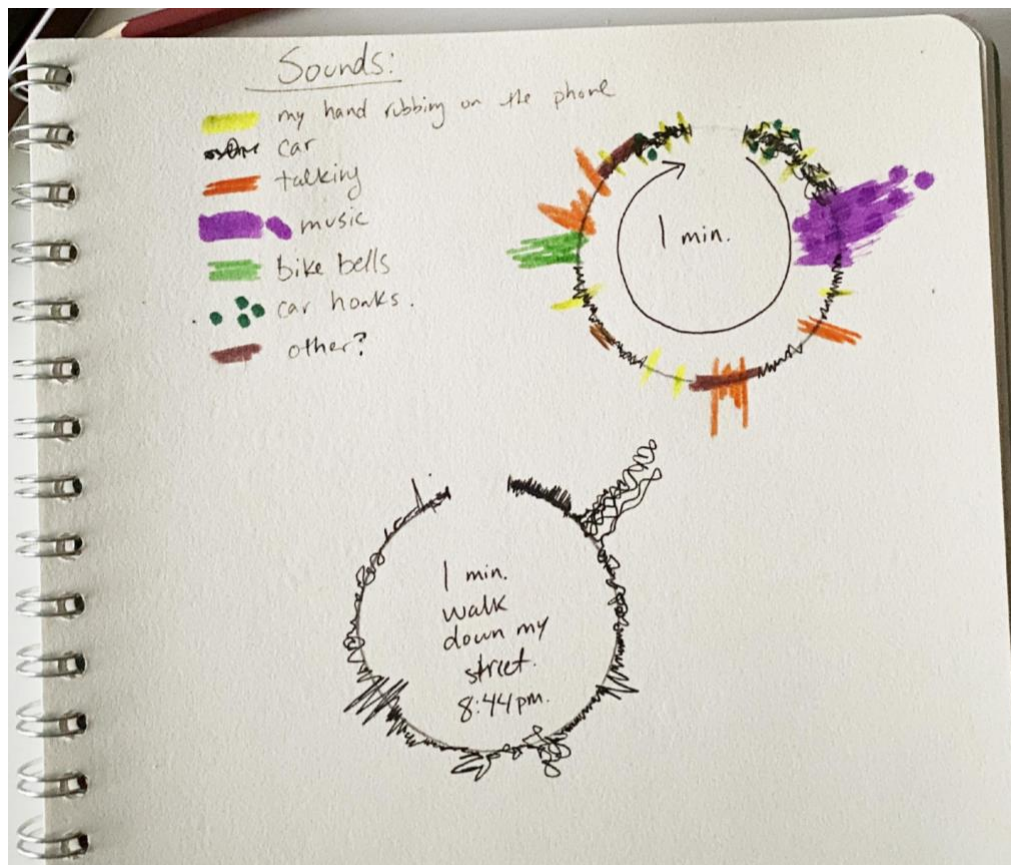 Sounds:
my hand rubbing on the phone
car
talking
music
bike bells
car honks.
other?
1 min.
1 min.
walk
down my
street.
8:44pm.